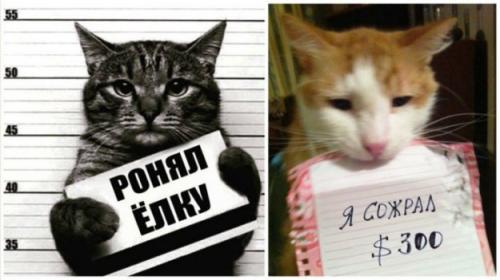 55
50
45
40
35
РОНЯЛ
ЁЛКУ
Я СОЖРАЛ
$ 300